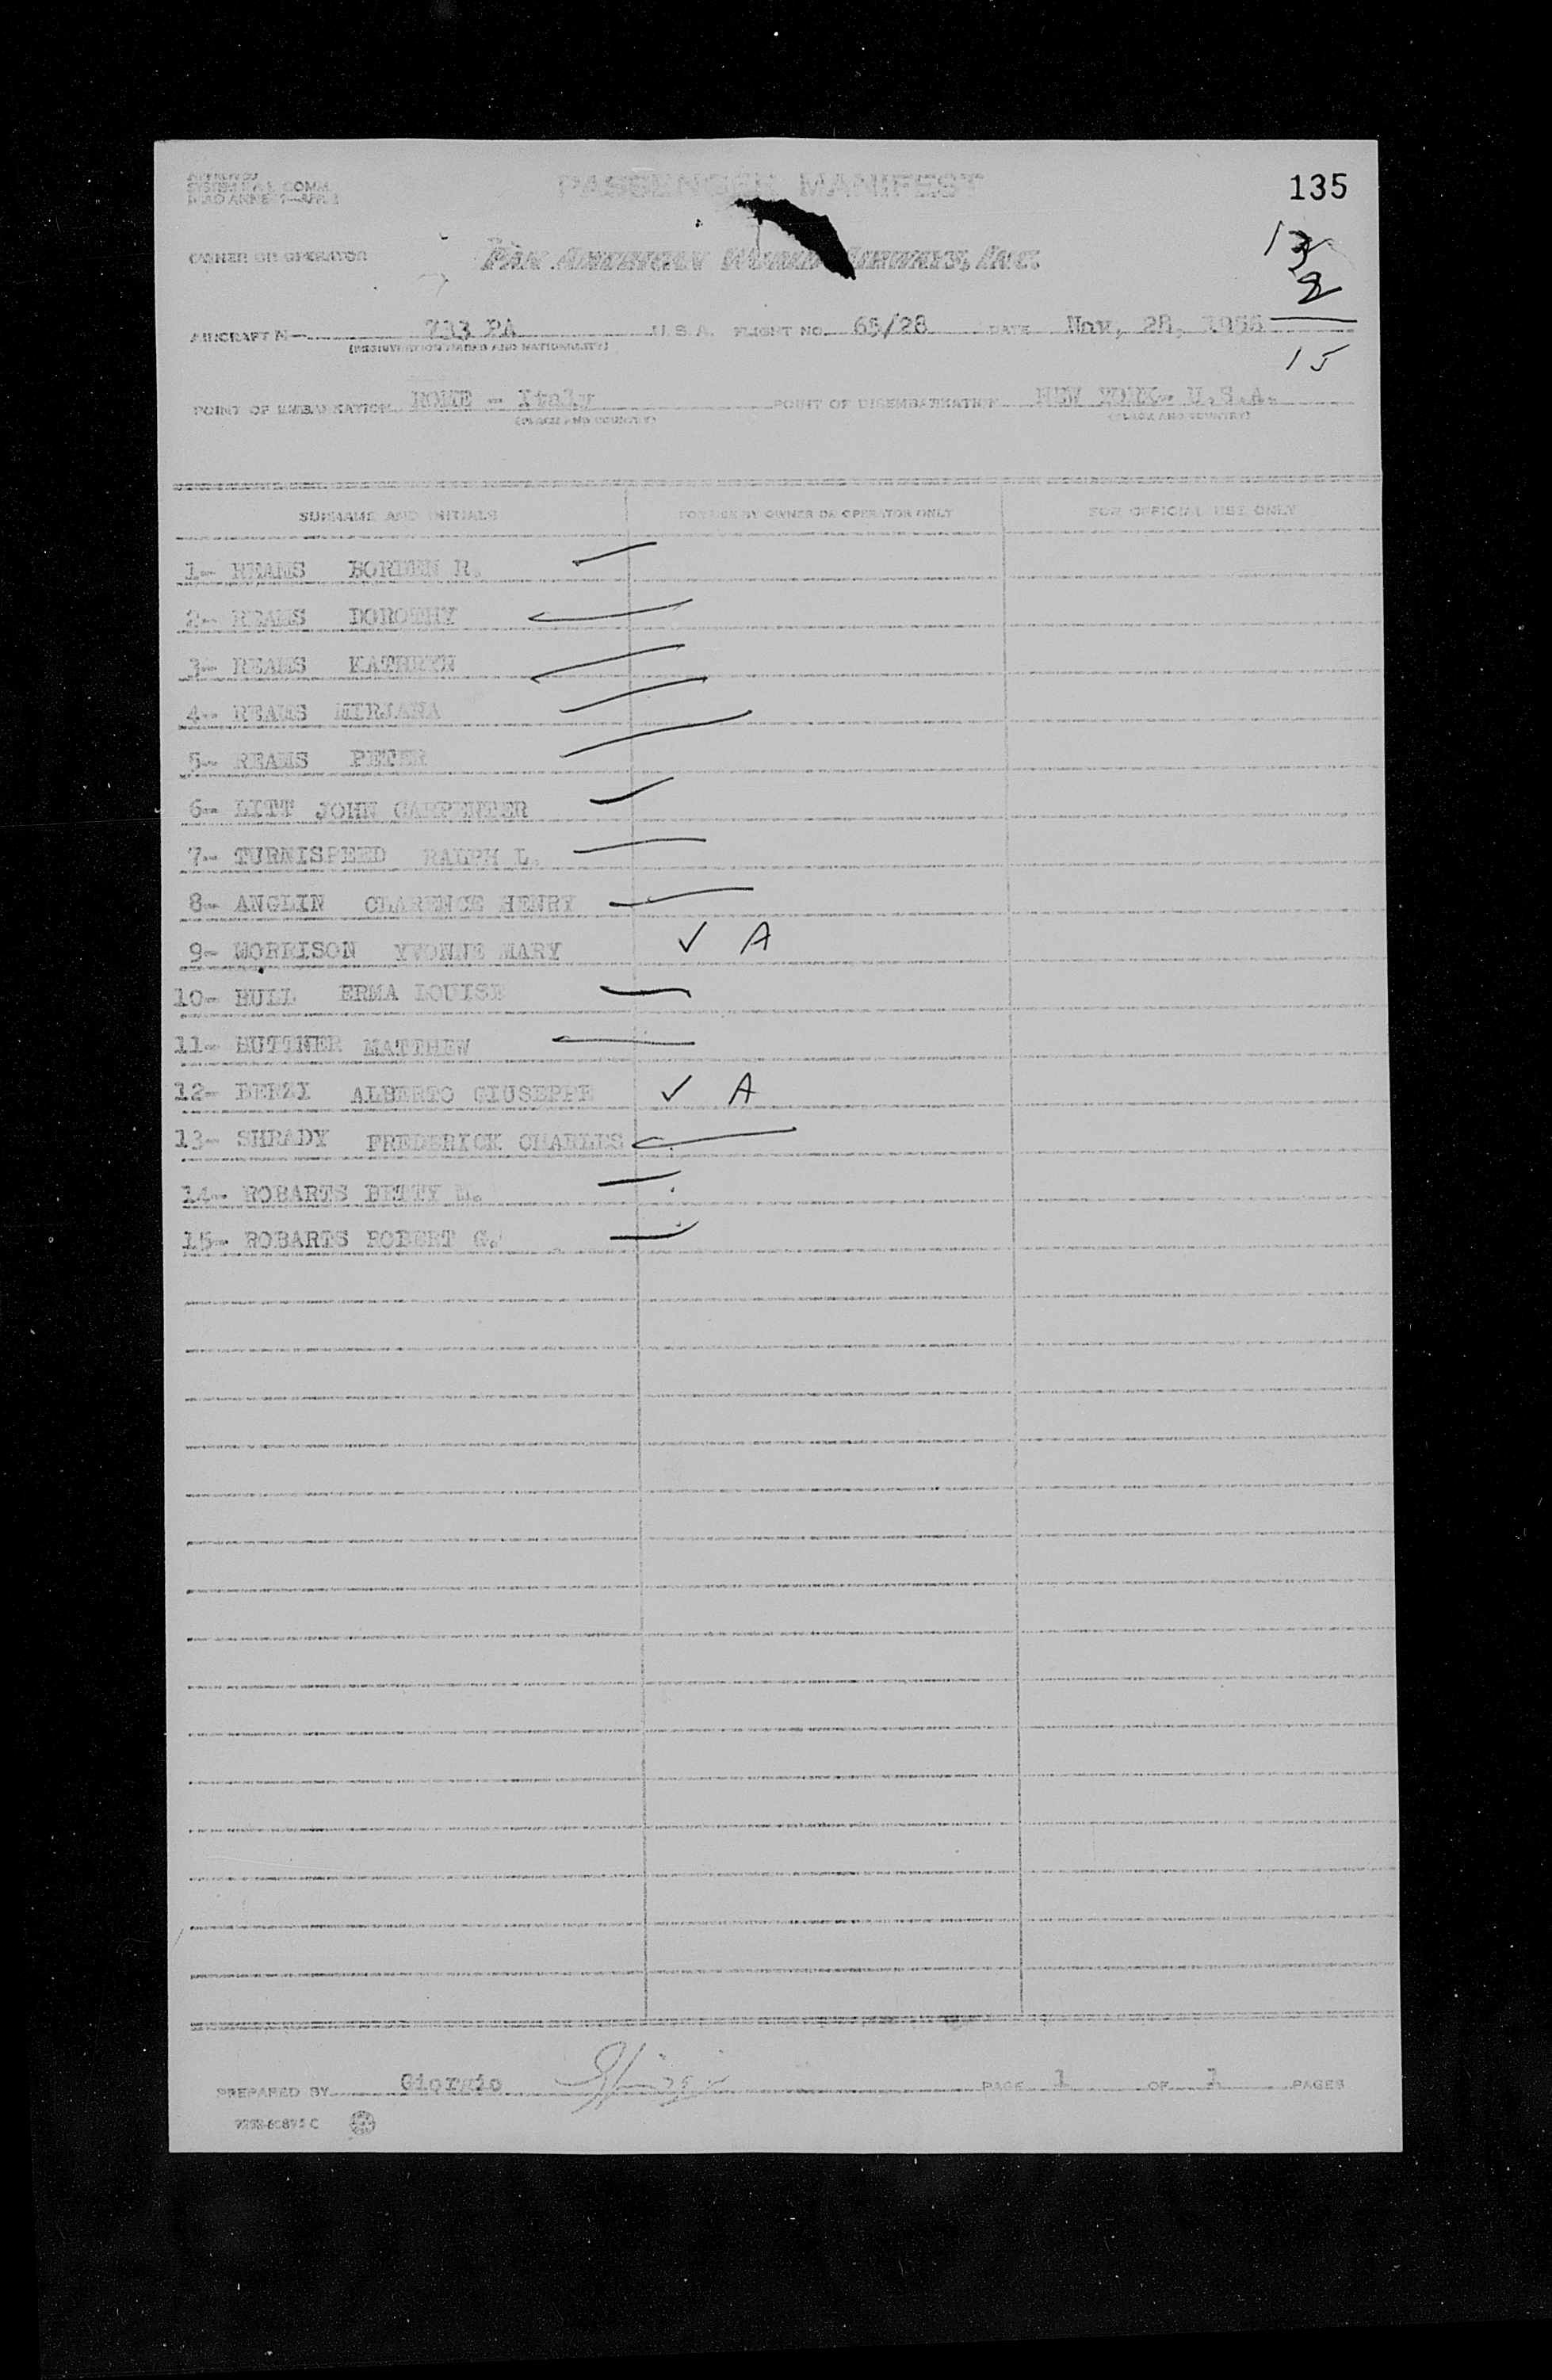 PASSENGER MANIFEST
135
13
2
15
OWNER OR OPERATOR
PAN AMERICAN WORLD AIRWAYS, INC.
AIRCRAFT N— 733 PA U.S.A. FLIGHT NO. 65/28 DATE Nov, 28,
(REGISTRATION MARKS AND NATIONALITY)
POINT OF EMBARKATION ROME - Italy POINT OF DISEMBARKATION NEW YORK- U.S.A.
(PLACE AND COUNTRY) (PLACE AND COUNTRY)
SURNAME AND INITIALS FOR USE BY OWNER OR OPERATOR ONLY FOR OFFICIAL USE ONLY
1- REAMS BORDEN R.
2- REAMS DOROTHY
3- REAMS KATHRYN
4- REAMS MIRJANA
5- REAMS PETER
6- LITT JOHN CARPENTER
7- TURNISPEED RALPH L.
8- ANGLIN CLARENCE HENRY
9- MORRISON YVONNE MARY ✓ A
10- HULL ERMA LOUISE
11- MATTHEW
12- ALBERTO GIUSEPPE ✓ A
13- SHRADY FREDERICK CHARLES
14- ROBARTS BETTY
15- ROBARTS ROBERT G.
PREPARED BY Giorgio PAGE 1 OF 1 PAGES